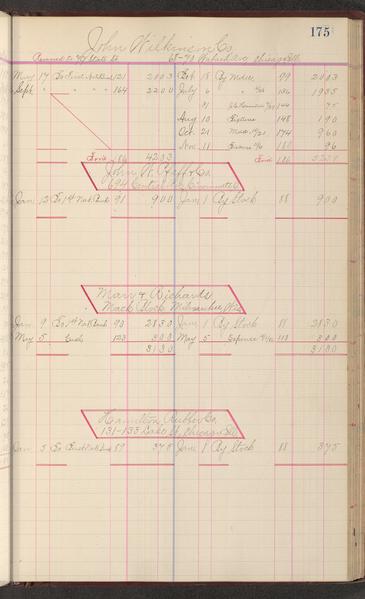 175
John Wilkinson Co
State St 68-70 Wabash Ave Chicago Ill
May 17 To First Natl Bank 121 2003 Feb 18 By Mdse 99 2003
Sept " " " 164 2200 July 6 " " 136 1935
91 144 75
Aug 10 Fixtures 148 190
Oct 21 Mdse 174 960
Nov 11 Expense 180 96
Ford 186 4203 Ford 186
John W. & Co
694 Central Ave Cincinnati O
Jan 12 To 1st Natl Bank 91 900 Jan 1 By Stock 88 900
Mary & Richards
Mack Block Milwaukee Wis
Jan 9 To 1st Natl Bank 90 2830 Jan 1 By Stock 88 2830
May 5 " Cash 123 300 May 5 Expense 118 300
3130 3130
Hamilton Rubber Co.
131-133 Lake St. Chicago Ill
Jan 5 To First Natl Bank 89 375 Jan 1 By Stock 88 375